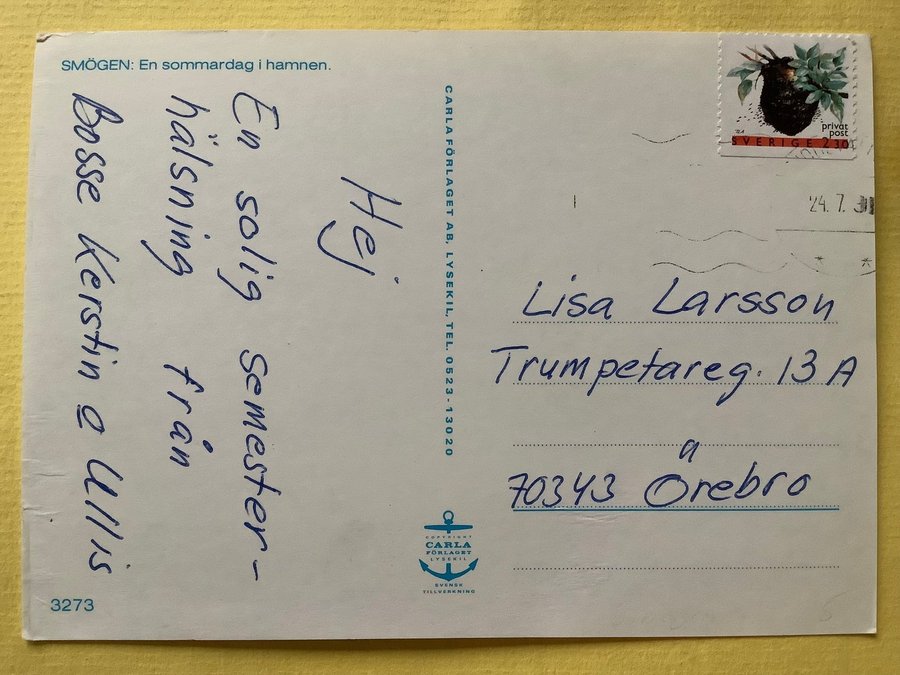 SMÖGEN: En sommardag i hamnen.
Hej
En solig semester-
hälsning från
Bosse Kerstin o Ullis
3273
CARLA FÖRLAGET AB, LYSEKIL, TEL. 0523-13020
COPYRIGHT
CARLA
FÖRLAGET
LYSEKIL
SVENSK
TILLVERKNING
privat
post
SVERIGE 2.30
24. 7.
Lisa Larsson
Trumpetareg. 13 A
70343 Örebro